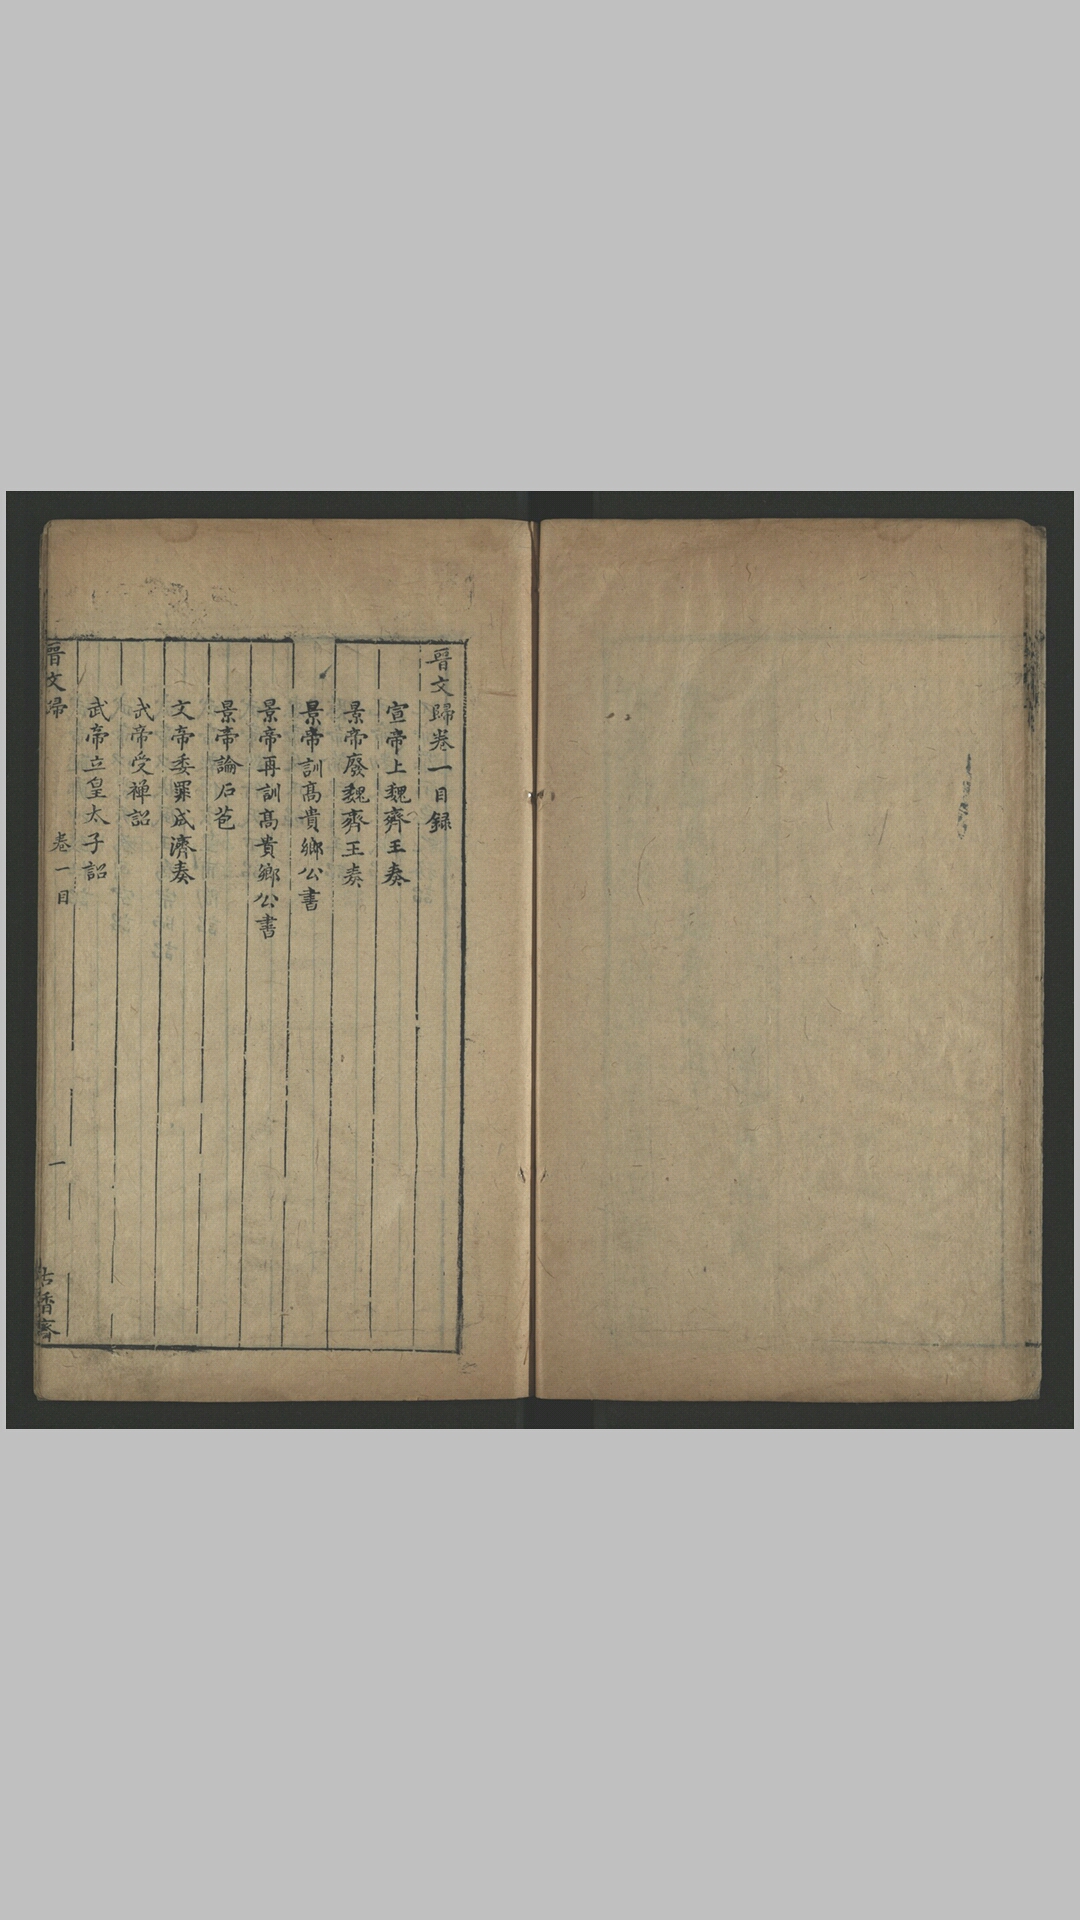 晉文歸卷一目録
宣帝上魏齊王奏
景帝廢魏齊王奏
景帝訓髙貴鄉公書
景帝再訓髙貴鄉公書
景帝論石苞
文帝委罪成濟奏
武帝受禅詔
武帝立皇太子詔
晉文歸
卷一目
一
古香齋